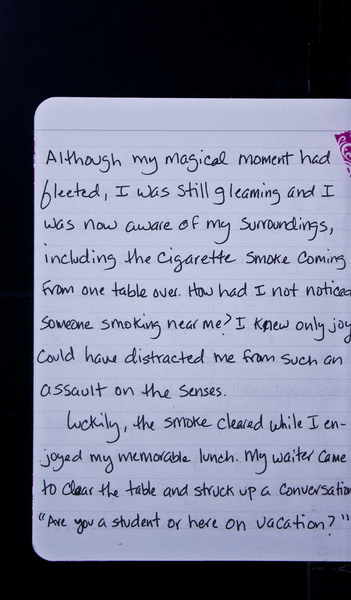 Although my magical moment had
fleeted, I was still gleaming and I
was now aware of my surroundings,
including the cigarette smoke coming
from one table over. How had I not noticed
someone smoking near me? I knew only joy
could have distracted me from such an
assault on the senses.
Luckily, the smoke cleared while I en-
joyed my memorable lunch. My waiter came
to clear the table and struck up a conversation
"Are you a student or here on vacation?"